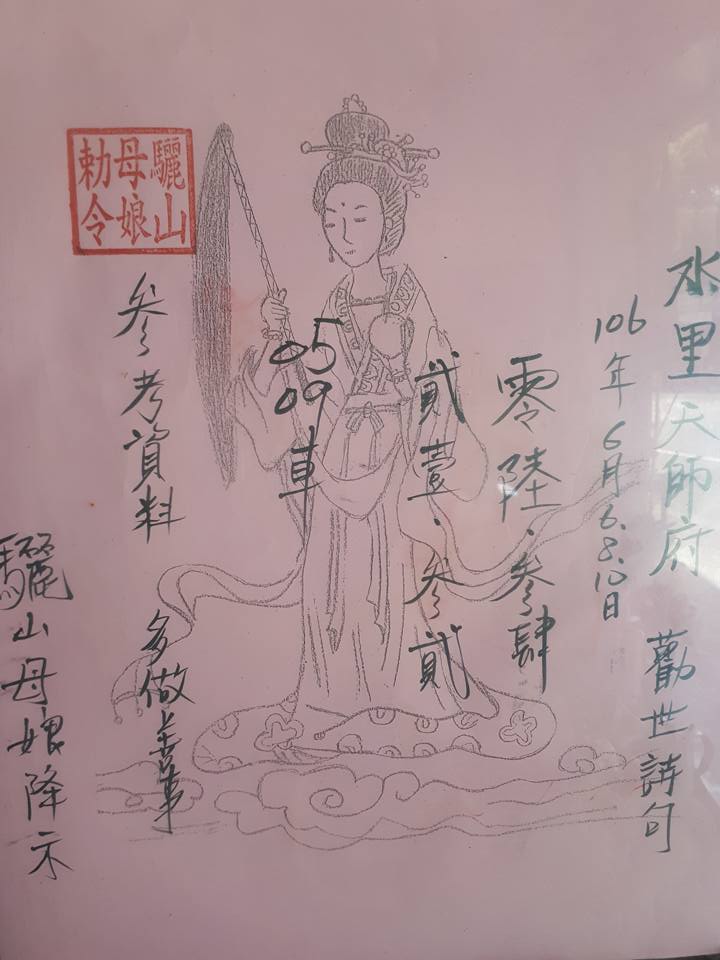 水里天師府 勸世詩句
106年6月6.8.10日
零陸.叁肆
貳壹.叁貳
05
09車
參考資料
多做善事
驪山母娘降示
驪山
母娘
勅令